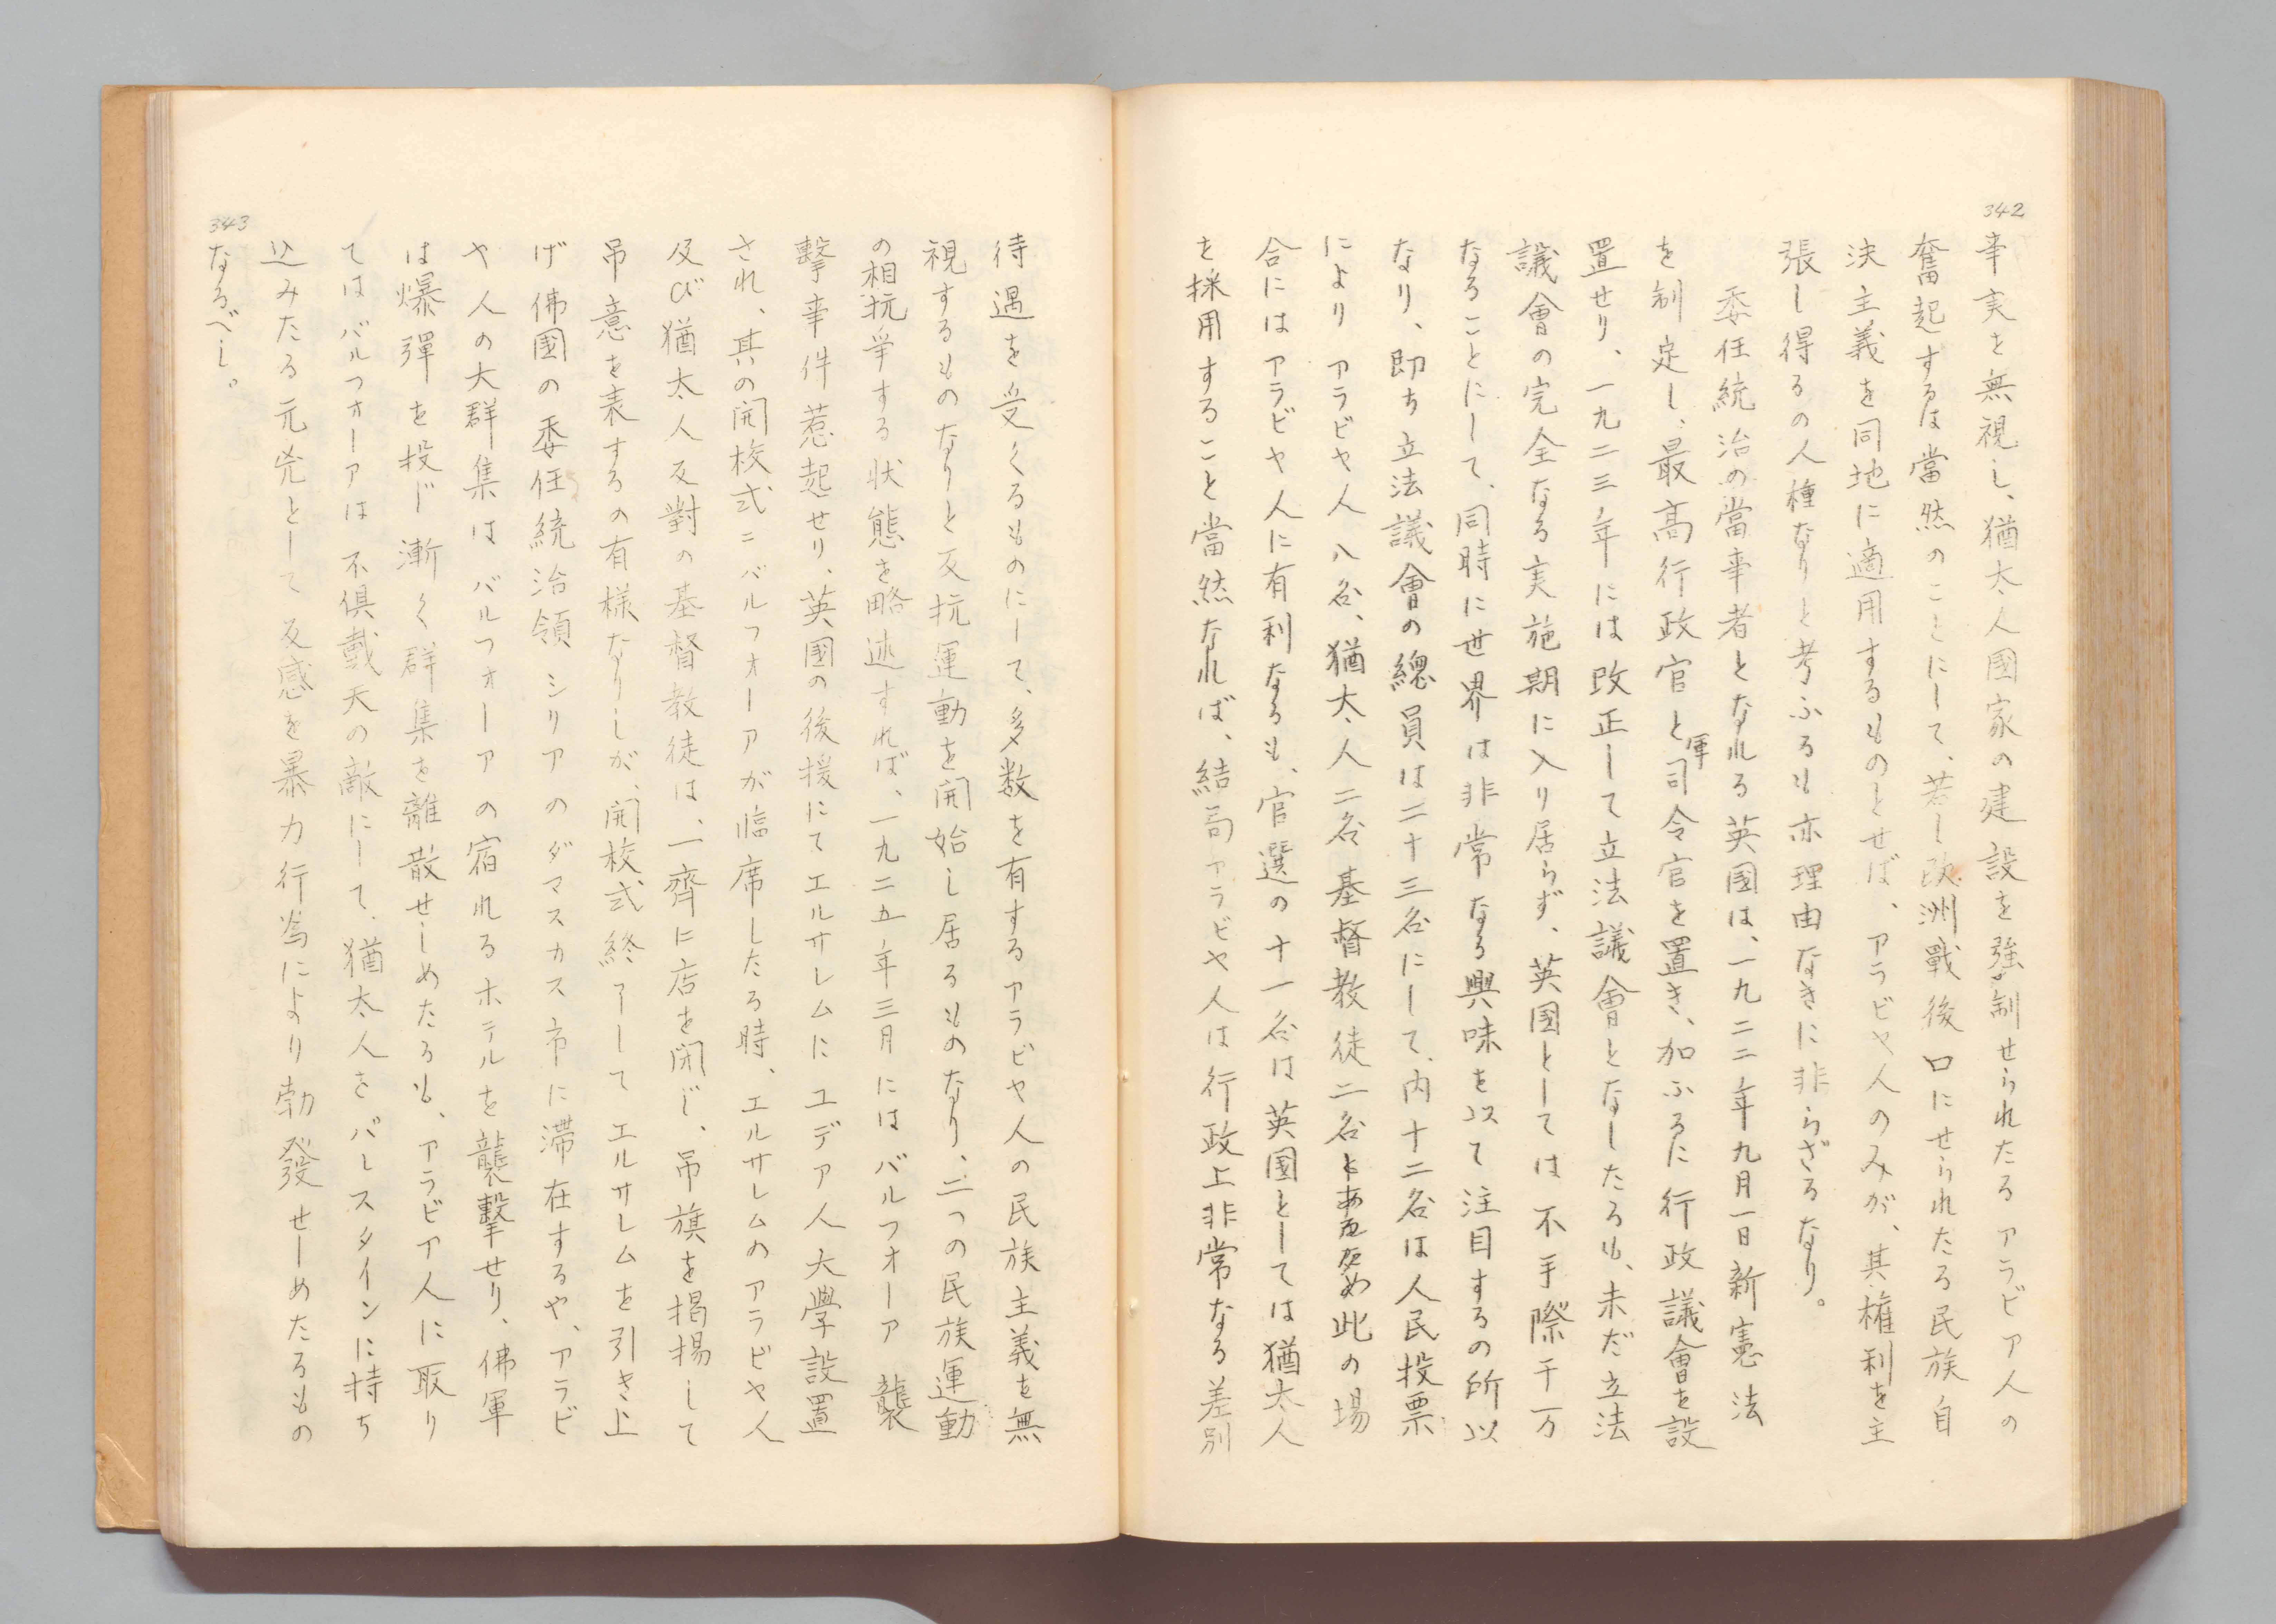 342
事実を無視し、猶太人國家の建設を強制せられたるアラビア人の
奮起するは當然のことにして、若し欧洲戰後口にせられたる民族自
決主義を同地に適用するものとせば、アラビヤ人のみが、其権利を主
張し得るの人種なりと考ふるも亦理由なきに非らざるなり。
委任統治の當事者となれる英國は、一九二二年九月一日新憲法
を制定し、最高行政官と軍司令官を置き、加ふるに行政議會を設
置せり、一九二三年には改正して立法議會となしたるも、未だ立法
議會の完全なる実施期に入り居らず、英國としては不手際千万
なることにして、同時に世界は非常なる興味を以て注目するの所以
なり、即ち立法議會の總員は二十三名にして、内十二名は人民投票
によりアラビヤ人八名、猶太人二名基督教徒二名と此の場
合にはアラビヤ人に有利なるも、官選の十一名は英國としては猶太人
を採用すること當然なれば、結局アラビヤ人は行政上非常なる差別
待遇を受くるものにして、多数を有するアラビヤ人の民族主義を無
視するものなりと反抗運動を開始し居るものなり、二つの民族運動
の相抗爭する状態を略述すれば、一九二五年三月にはバルフオーア襲
撃事件惹起せり、英國の後援にてエルサレムにユデア人大學設置
され、其の開校式ニバルフオーアが臨席したる時、エルサレムのアラビヤ人
及び猶太人反對の基督教徒は、一齊に店を閉じ、吊旗を揭揚して
吊意を表するの有様なりしが、開校式終了してエルサレムを引き上
げ佛國の委任統治領シリアのダマスカス市に滞在するや、アラビ
ヤ人の大群集はバルフオーアの宿れるホテルを襲撃せり、佛軍
は爆彈を投じ漸く群集を離散せしめたるも、アラビア人に取り
てはバルフオーアは不俱戴天の敵にして、猶太人をパレスタインに持ち
込みたる元兇として反感を暴力行爲により勃發せしめたるもの
343
なるべし。